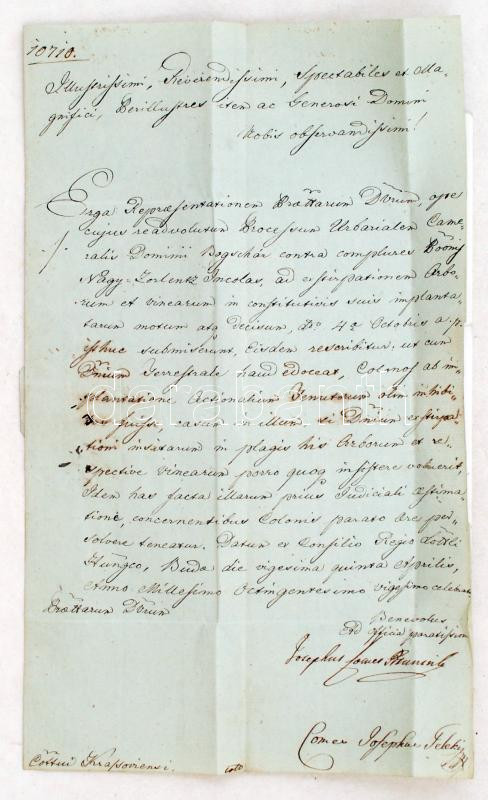 10710.
Illustrissimi, Reverendissimi, Spectabiles et Ma-
gnifici, Perillustres item ac Generosi Domini
Nobis observandissimi!
Erga Repræsentationem Prættarum Dvrum, ope
cujus readvolutum Processum Urbarialem Came-
ralis Dominii Bogschár contra complures Possnis
Nagy-Zorlentz Incolas, ad exstirpationem Arbo-
rum et vinearum in constitutivis suis implanta-
tarum motum atq decisum, Do 4a Octobris a. p.
isthuc submiserunt, Eisdem rescribitur, ut cum
Dnium Terrestrale haud doceat, Colonos ab im-
plantatione Actionalium Genutarum olim inhibi-
tos fuisse, casum in illum si Dnium exstirpa-
tioni insitarum in plagis his Arborum et re-
spective Vinearum porro quoq insistere voluerit,
Item has facta illarum prius Judiciali æstima-
tione, concernentibus Colonis parato ære per-
solvere teneatur. Datum ex Consilio Regio Lottli
Hungco, Budæ die vigesima quinta Aprilis,
Anno Millesimo Octingentesimo vigesimo celebrato
Prættarum Dvrum
Benevolus
Ad officia paratissimi
Josephus Comes
Comes Josephus Teleky
Cottui Krassoviensi.
darabanth